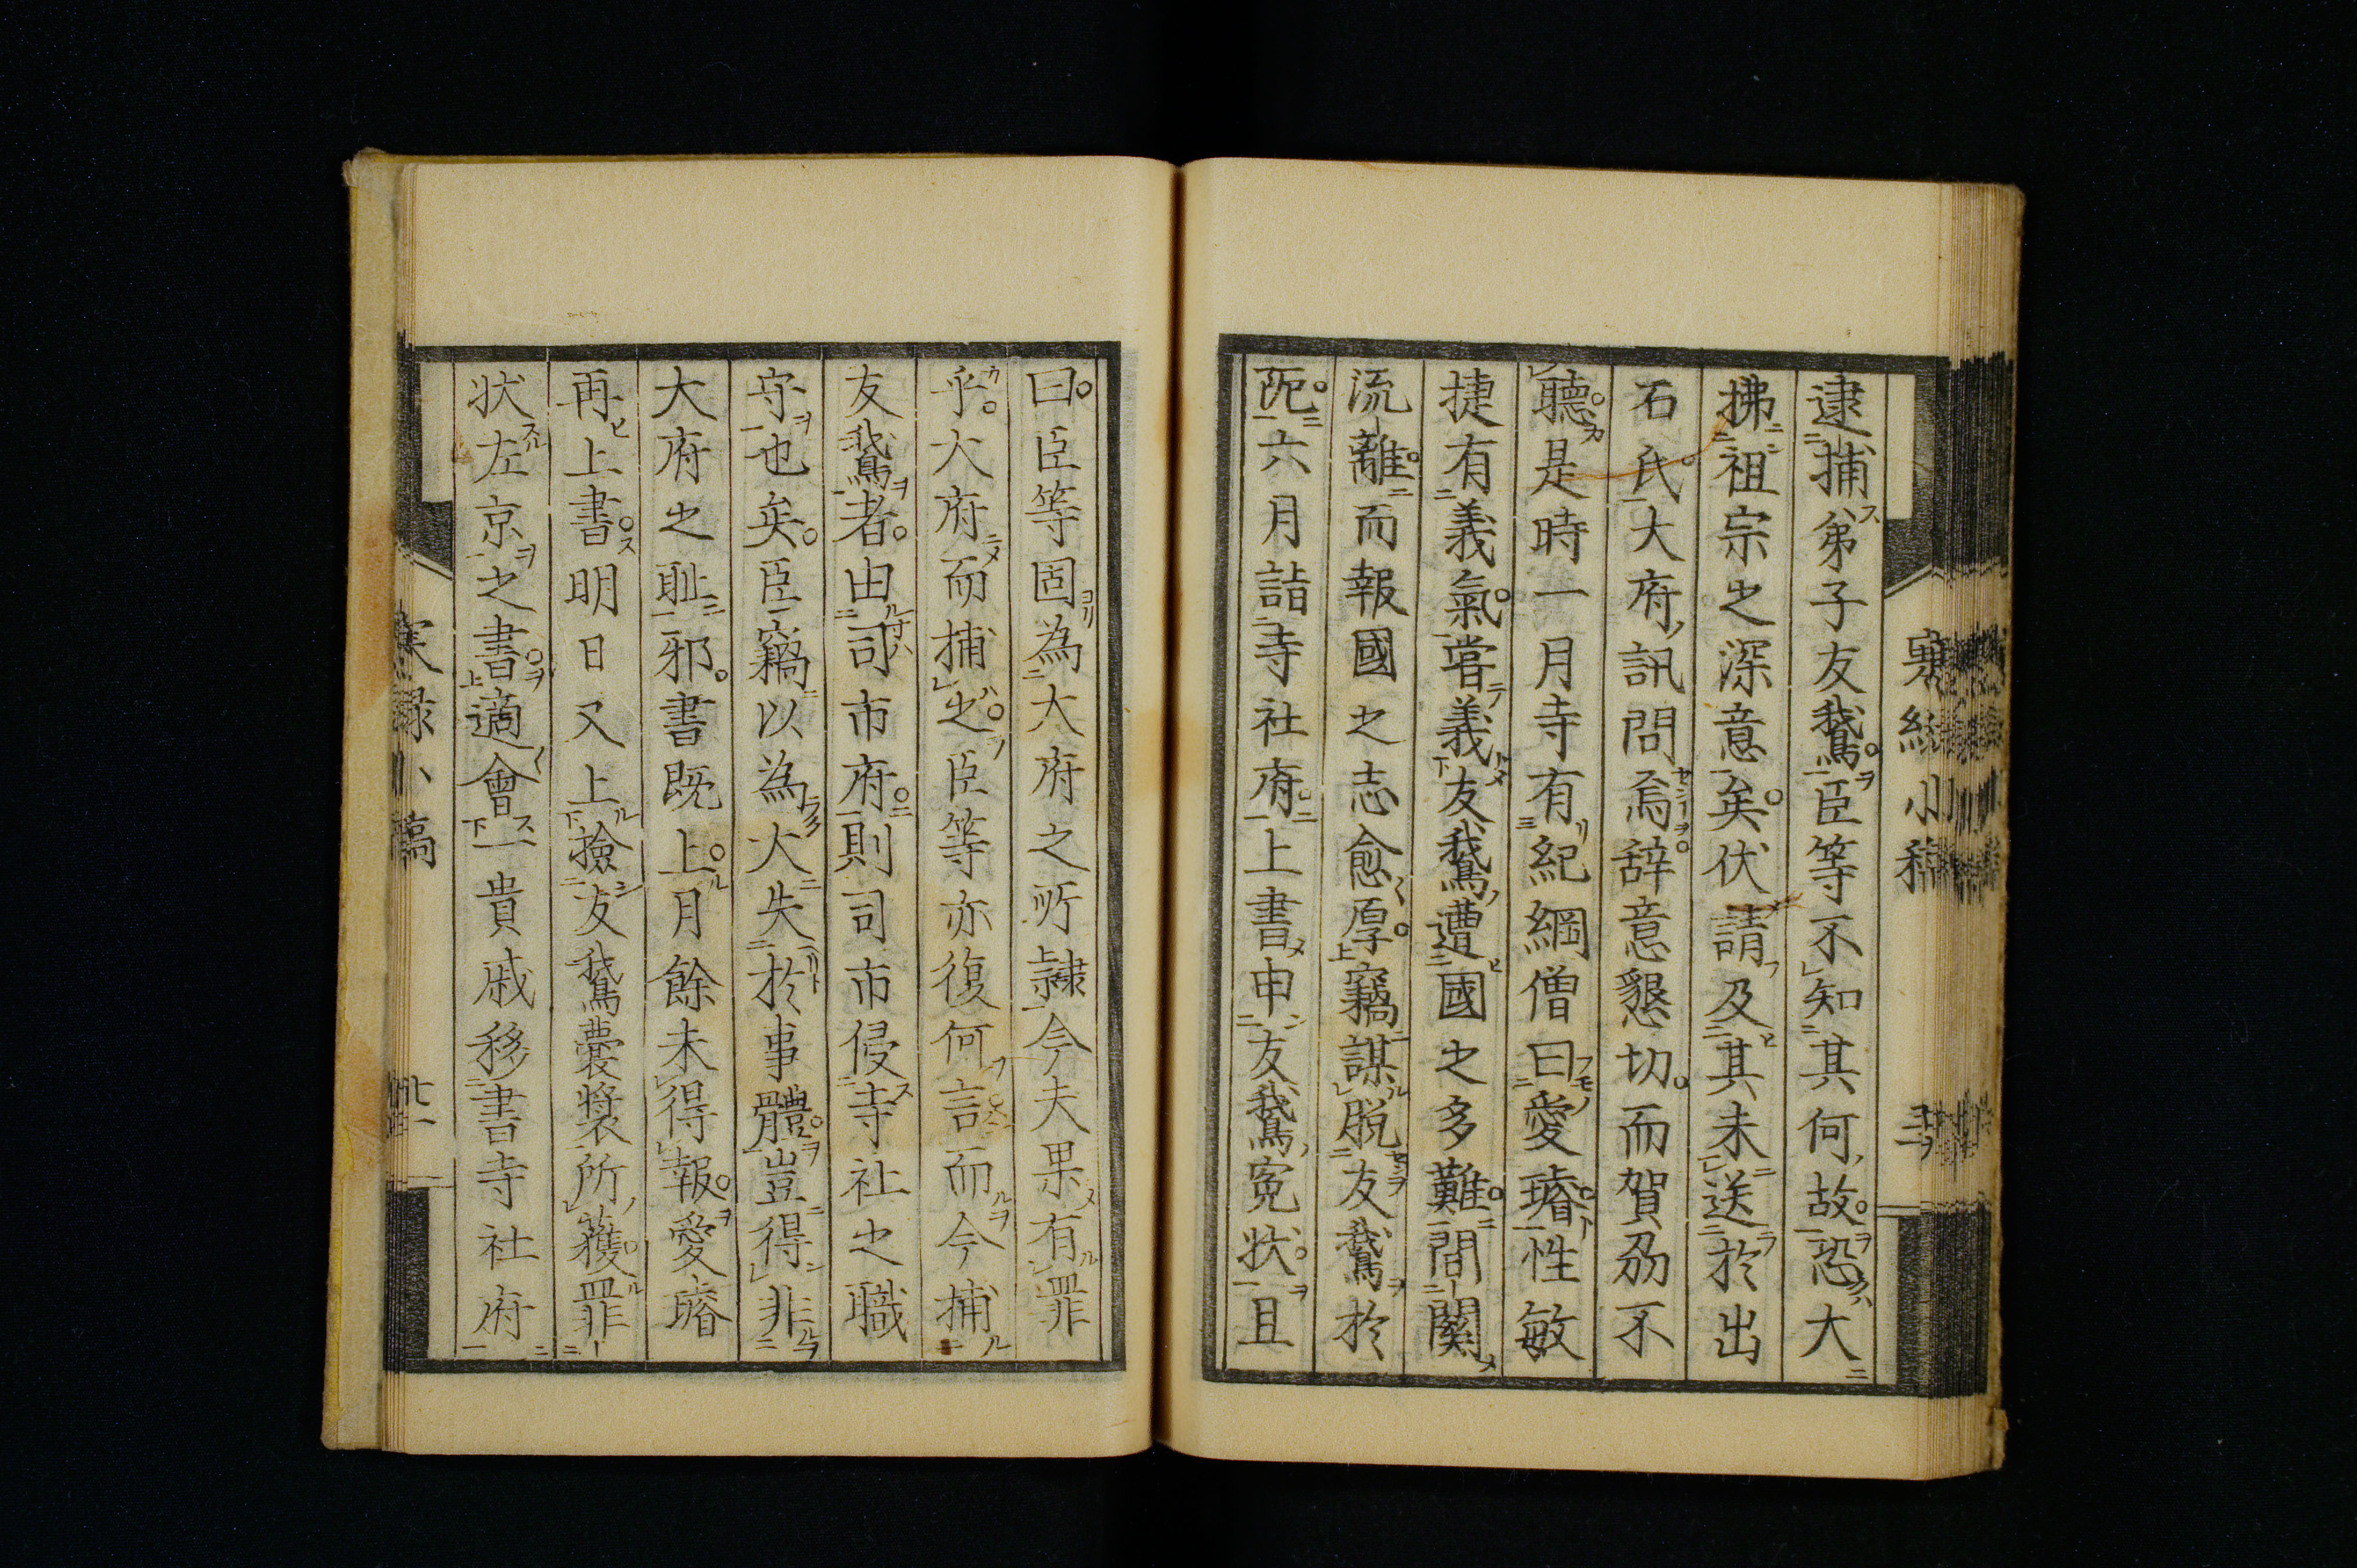 逮捕弟子友鵞臣等不知其何故恐大
拂祖宗之深意矣伏請及其未送於出
石氏大府訊問焉辞意懇切而賀劦不
聽是時一月寺有紀綱僧曰愛璿性敏
捷有義氣嘗義友鵞遭國之多難間關
流離而報國之志愈厚竊謀脱友鵞於
阨六月詣寺社府上書申友鵞寃状且
曰臣等固為大府之所隷今夫果有罪
乎大府而捕之臣等亦復何言而今捕
友鵞者由司市府則司市侵寺社之職
守也矣臣竊以為大失於事體豈得非
大府之耻邪書既上月餘未得報愛璿
再上書明日又上撿友鵞囊褩所獲罪
状左京之書適會一貴戚移書寺社府